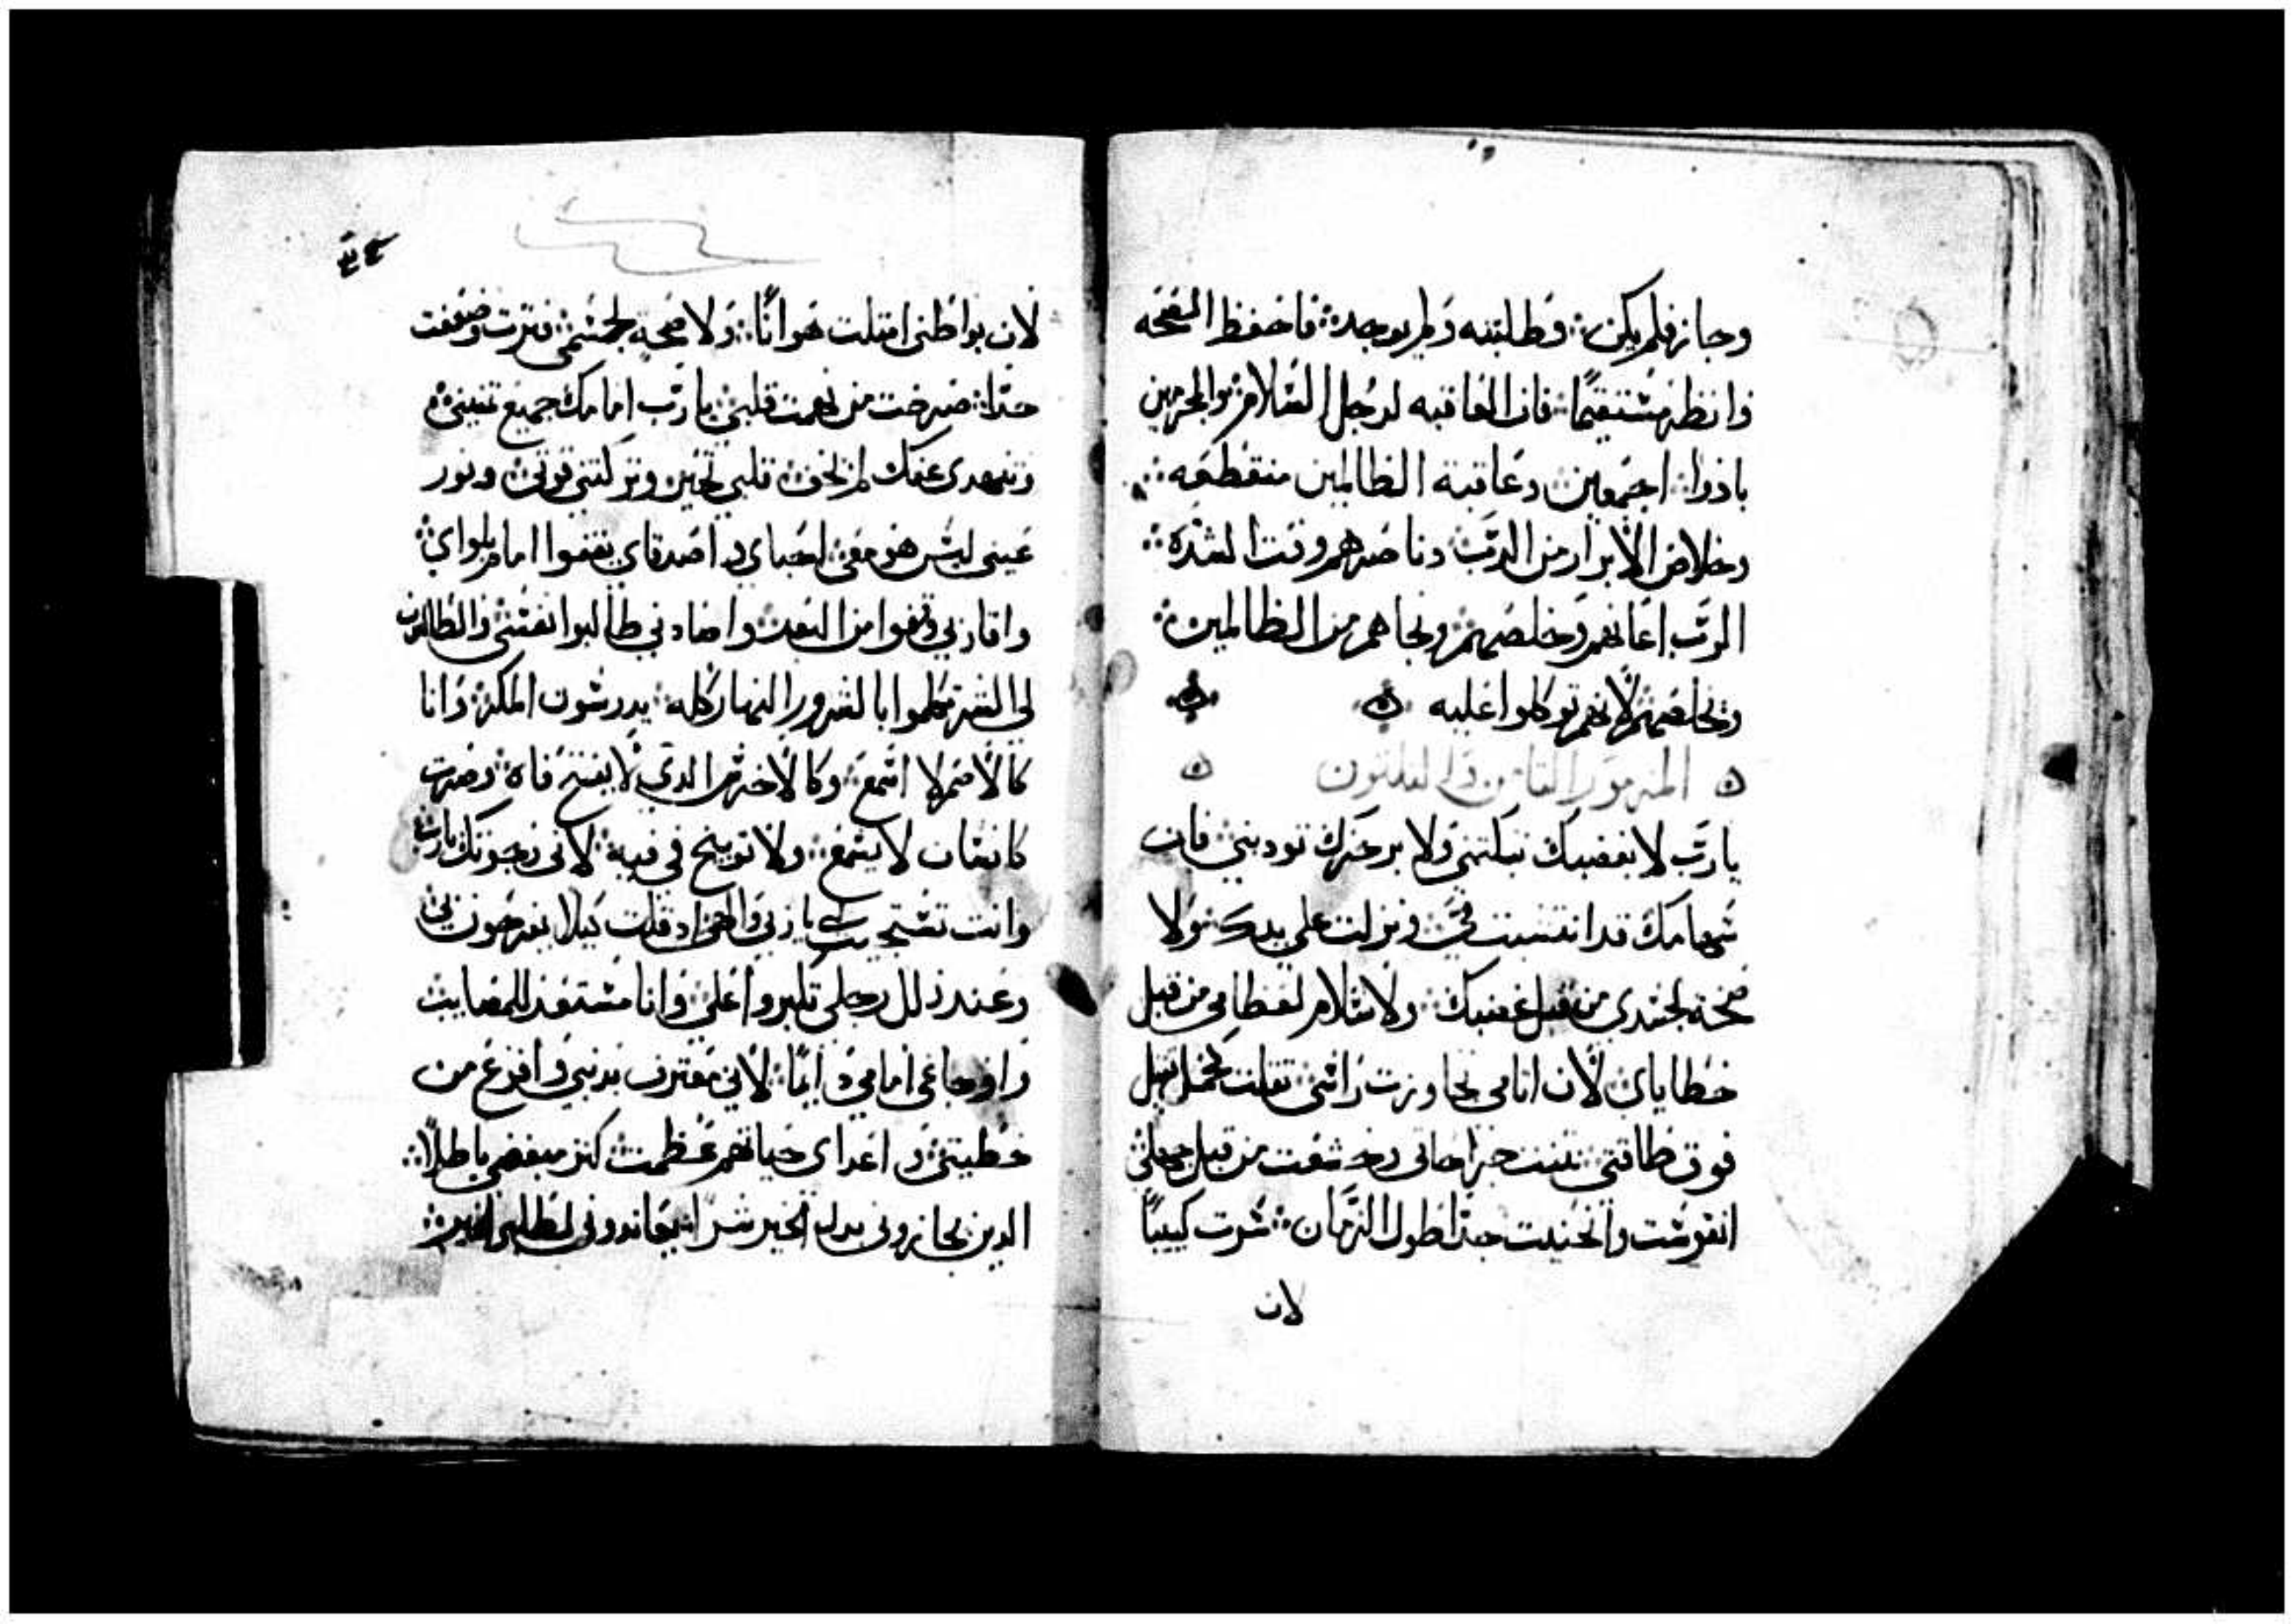 وجاز فلم يكن ۞ وطلبته ولم يوجد ۞ فاحفظ الصحه
وانظر مستقيمًا ۞ فان العاقبه لرجل السلام ۞ والمجرمين
بادوا ۞ اجمعين ۞ وعاقبة الظالمين منقطعه ۞
وخلاص الابرار من الربّ ۞ وناصرهم وقت الشدّة ۞
الربّ اعانهم وخلصهم ۞ ونجاهم من الظالمين ۞
وخلصهم لانهم توكلوا عليه ۞ ۞
۞ المزمور الثامن والثلثون ۞
يا ربّ لا بغضبك تبكتني ولا برجزك تودبني ۞ فان
سهامك قد انتشبت فيّ ۞ ونزلت علي يدك ۞ ولا
صحة لجسدي من قبل غضبك ۞ ولا سلام لعظامي من قبل
خطاياي ۞ لان اثامي تجاوزت راسي ۞ ثقلت كحمل ثقيل
فوق طاقتي ۞ نتنت جراحاتي وخشعت من قبل جهلي ۞
انقوست وانحنيت جدًا طول الزمان ۞ سرت كييبًا
لان
٣٤
لان بواطني امتلت هوانًا ۞ ولا صحة لجسمي ۞ فترت وضعفت
جدًا ۞ صرخت من نهمت قلبي ۞ يا ربّ امامك جميع تمنيي ۞
وتنهدي عنك لم يخف ۞ قلبي تحير وتركتني قوتي ۞ ونور
عيني ليس هو معي ۞ احباي و اصدقاي يقفوا امام بلواي ۞
واقاربي وقفوا من البعد ۞ واضادني طالبوا نفسي ۞ والطالبون
لي الشر تكلموا بالغرور النهار كله ۞ يدرسون المكر ۞ وانا
كالاصم لا اسمع ۞ وكالاخرس الدي لا يفتح فاه ۞ وصرت
كانسان لا يسمع ۞ ولا توبيخ في فيه ۞ لاني رجوتك يا ربّ ۞
وانت تستجيب لي يا ربي والهي ۞ اد قلت كيلا يفرحون بي ۞
وعند زلل رجلي تكبروا علي ۞ وانا مستعد للمصايب ۞
واوجاعي امامي دايمًا ۞ لاني معترف بدنبي ۞ وافزع من
خطيتي ۞ و اعداي حياتهم عظمت ۞ كثر مبغضي باطلًا ۞
الدين يجازوني بدل الخير شرًا ۞ يعاندوني لطلبي الخير ۞